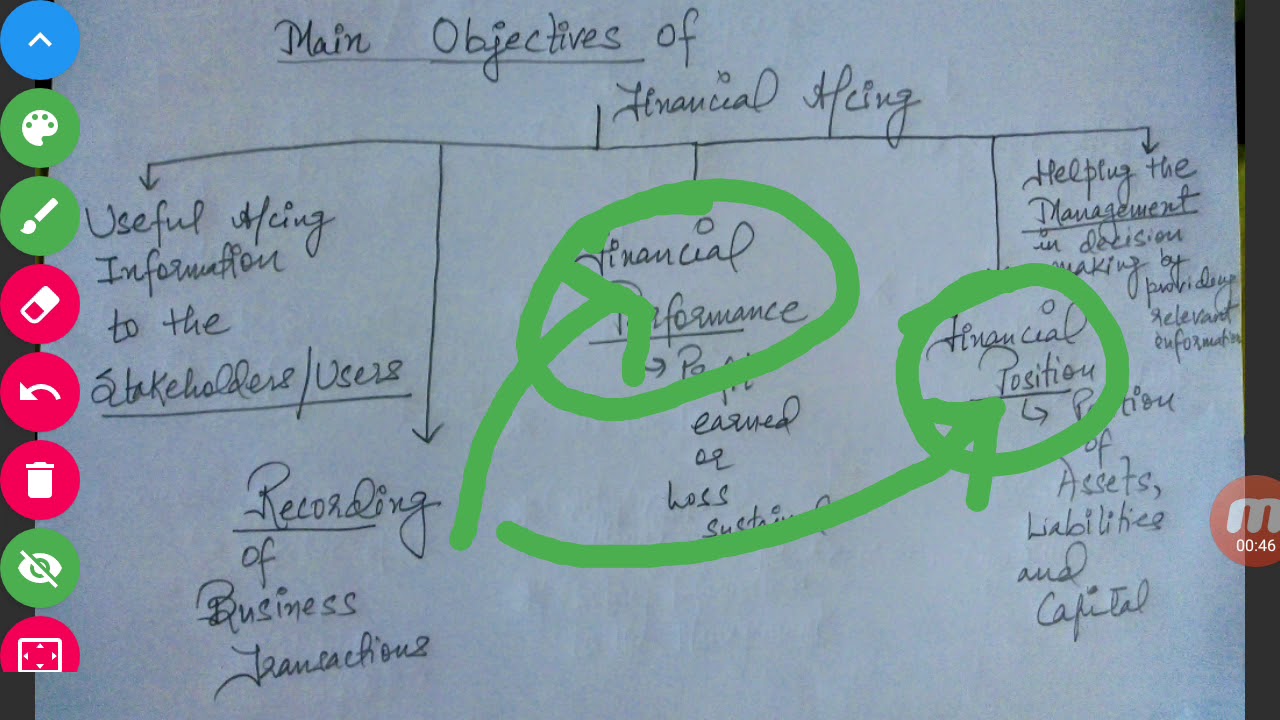 Main Objectives of
Financial A/cing
Useful A/cing
Information
to the
Stakeholders/Users
Recording
of
Business
Transactions
Financial
Performance
→ Profit
earned
or
Loss
Financial
Position
↳ Position
of
Assets,
Liabilities
and
Capital
Helping the
Management
in decision
making by
providing
relevant
information
00:46